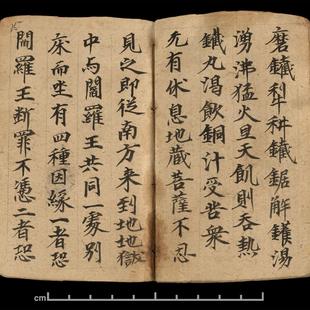 磨鐵犁耕鐵鋸解鑊湯
湧沸猛火旦天飢則吞熱
鐵丸渴飲銅汁受苦衆
无有休息地藏菩薩不忍
見之即從南方来到地地獄
中与閻羅王共同一處別
床而坐有四種因緣一者恐
閻羅王断罪不憑二者恐
cm